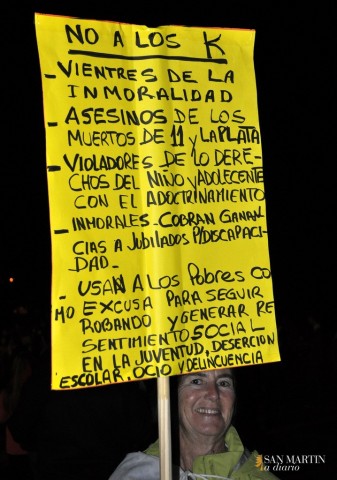 NO A LOS K
- VIENTRES DE LA
INMORALIDAD
- ASESINOS DE LOS
MUERTOS DE 11 Y LA PLATA
- VIOLADORES DE LO DERE-
CHOS DEL NIÑO Y ADOLECENTE
CON EL ADOCTRINAMIENTO
- INMORALES - COBRAN GANAN
CIAS A JUBILADOS P/DISCAPACI-
DAD -
- USAN A LOS PObRES CO
MO EXCUSA PARA SEGUIR
ROBANDO Y GENERAR RE
SENTIMIENTO SOCIAL
EN LA JUVENTUD, DESERCION
ESCOLAR, OCIO Y DELINCUENCIA
SAN MARTIN
a diario